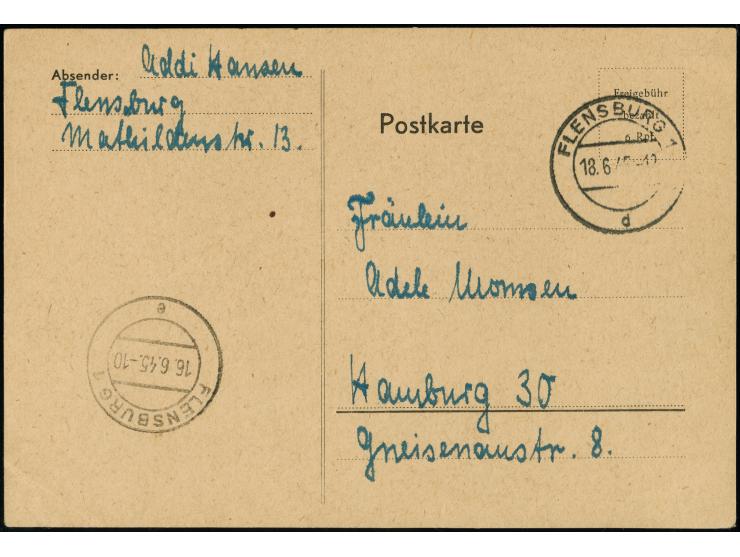 Absender: Addi Hansen
Flensburg
Mathildenstr. 13.
Postkarte
Freigebühr
bezahlt
6 Rpf.
FLENSBURG 1
18.6.45-12
d
Fräulein
Adele Momsen
Hamburg 30
Gneisenaustr. 8.
e
16.6.45.-10
FLENSBURG 1